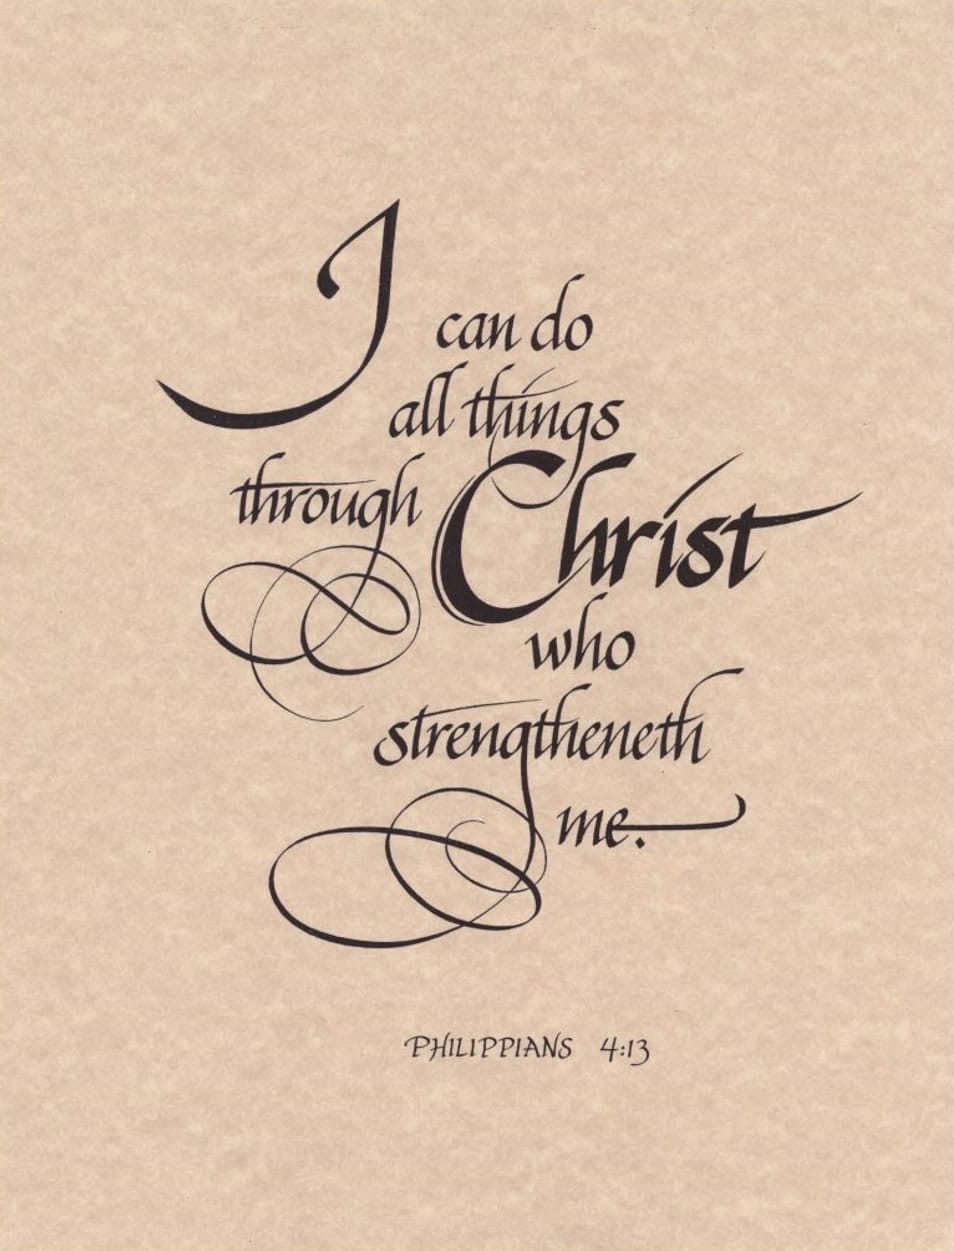 I can do
all things
through Christ
who
strengtheneth
me.
PHILIPPIANS 4:13